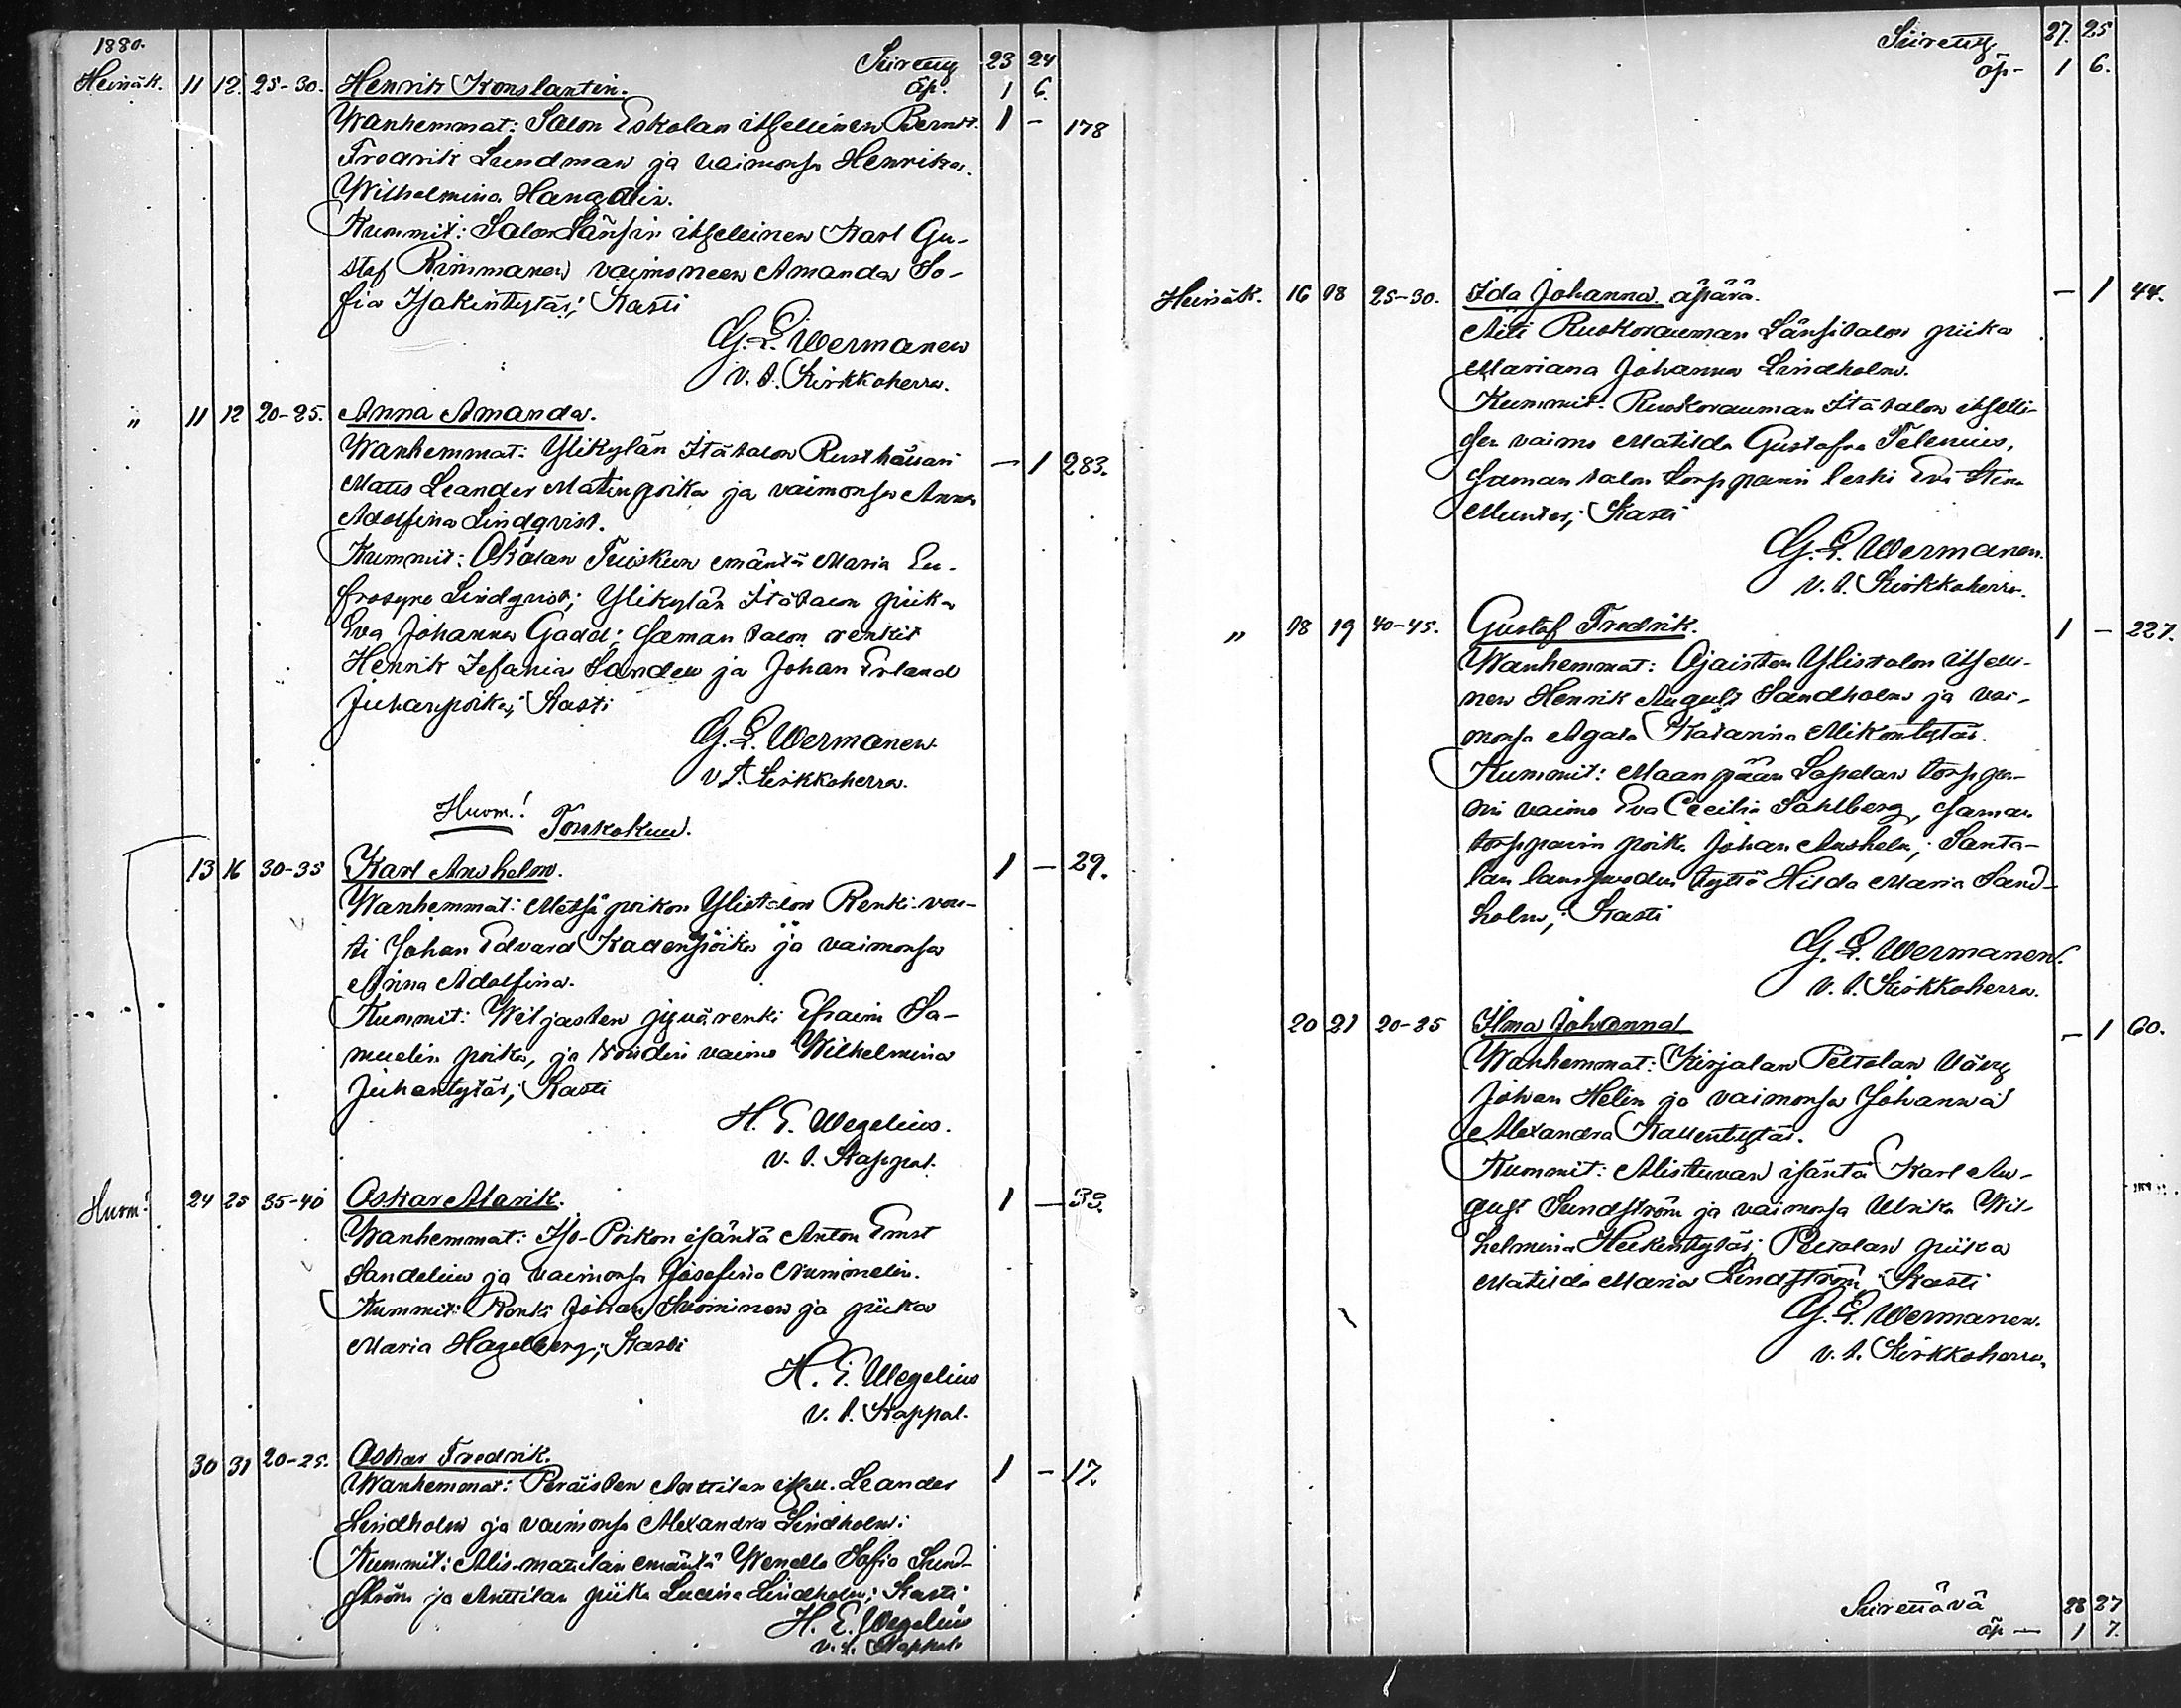 1880.
Siiretty 23 24
Heinäk. 11 12. 25-30. Henrik Konstantin. äp. 1 6.
Wanhemmat: Salon Eskolan itsellinen Bernt. 1 - 178
Fredrik Lundman ja vaimonsa Henrika
Wilhelmina
Kummit: Salon Länsin itsellinen Karl Gu-
staf vaimoneen Amanda So-
fia Isakintytär; Kasti
G. L. Wermanen
v. t. Kirkkoherra.
" 11 12 20-25. Anna Amanda.
Wanhemmat: Ylikylän Itätalon Rusthollari - 1 283.
Matts Leander Matinpoika ja vaimonsa Anna
Adolfina Lindqvist.
Kummit: emäntä Maria Eu-
frosyne Lindqvist; Ylikylän Itätalon piika
Eva Johanna Gadd; saman talon renkit
Henrik Sefania Sandell ja Johan Erland
Juhanpoika; Kasti
G. L. Wermanen.
v. t. Kirkkoherra.
Huom! Toukokuu.
13 16 30-35 Karl Anshelm. 1 - 29.
Wanhemmat: Metsäpoikon Ylistalon Renki vou-
ti Johan Edvard Kallenpoika ja vaimonsa
Anna Adolfina.
Kummit: Wiljasten jyvärenki Efraim Sa-
muelin poika, ja voudin vaimo Wilhelmina
Juhantytär; Kasti
H. E. Wegelius.
v. t. Kappal.
Huom! 24 25 35-40 Oskar Alarik. 1 - 39.
Wanhemmat: Iso-Poikon isäntä Anton Ernst
Sandelin ja vaimonsa Josefina Nummelin.
Kummit: Renki Johan Suominen ja piika
Maria Hagelberg; Kasti
H. E. Wegelius
v. t. Kappal.
30 31 20-25. Oskar Fredrik.
Wanhemmat: Peräisten Anttilan itsell. Leander 1 - 17.
Lindholm ja vaimonsa Alexandra Lindholm:
Kummit: Alis-mattilan emäntä Wendla Sofia Sund-
ström ja Anttilan piika Lucina Lindholm; Kasti;
H. E. Wegelius
v. t. Kappal.
Siiretty 27. 25
äp- 1 6.
Heinäk. 16 18 25-30. Ida Johanna. äpärä. - 1 44.
Äiti Ruokorauman Länsitalon piika
Mariana Johanna Lindholm.
Kummit: Ruokorauman Itätalon itselli-
sen vaimo Matilda Gustafva Telenius,
saman talon torpparin leski Eva Stina
Kasti
G. L. Wermanen.
v. t. Kirkkoherra.
" 18 19 40-45. Gustaf Fredrik. 1 - 227.
Wanhemmat: Ojaisten Ylistalon itselli-
nen Henrik August Sandholm ja vai-
monsa Agata Katarina Mikontytär.
Kummit: Maanpään torppa-
rin vaimo Eva Cecilia Sahlberg, saman
torpparin poika Johan Anshelm; Santa-
lan tyttö Hilda Maria Sand-
holm; Kasti
G. L. Wermanen.
v. t. Kirkkoherra.
20 21 20-25 Ilma Johanna - 1 60.
Wanhemmat: Kirjalan Peltolan vävy
Johan Helin ja vaimonsa Johanna
Alexandra Kallentytär.
Kummit: Alistuvan isäntä Karl Au-
gust Sundström ja vaimonsa Ulrika Wil-
helmina Heikintytär; Peltolan piika
Matilda Maria Lindström; Kasti
G. L. Wermanen.
v. t. Kirkkoherra.
Siirettävä 28 27
äp - 1 7.